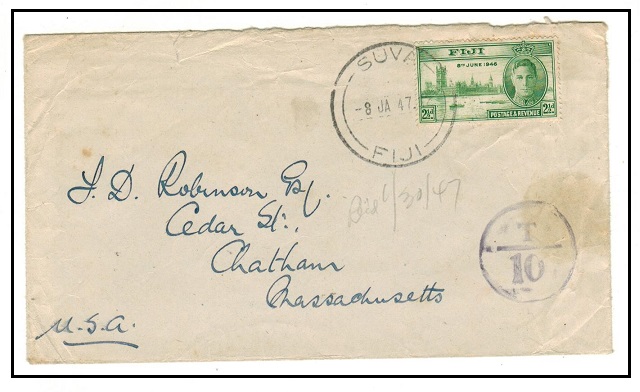 SUVA
-8 JA 47.
FIJI
FIJI
8TH JUNE 1946
2½d
POSTAGE & REVENUE
2½d
J. D. Robinson Esq.
Cedar St.,
Chatham
Massachusetts
U.S.A.
/30/47
T
10